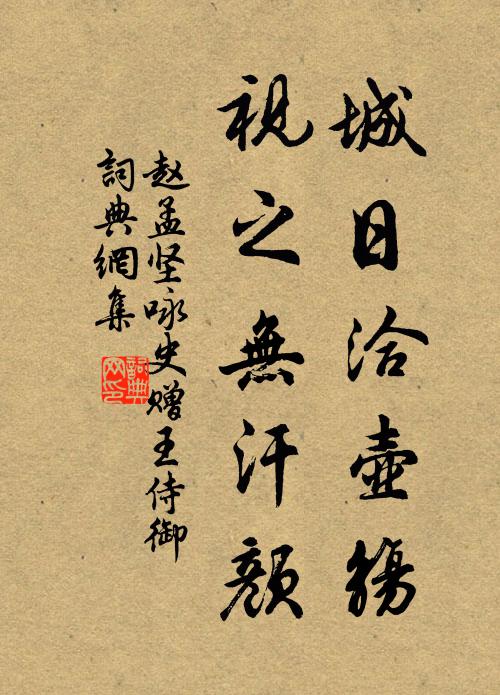 城日洽壺觴
視之無汗顔
赵孟坚咏史贈王侍御
詞典網集
詞典网印